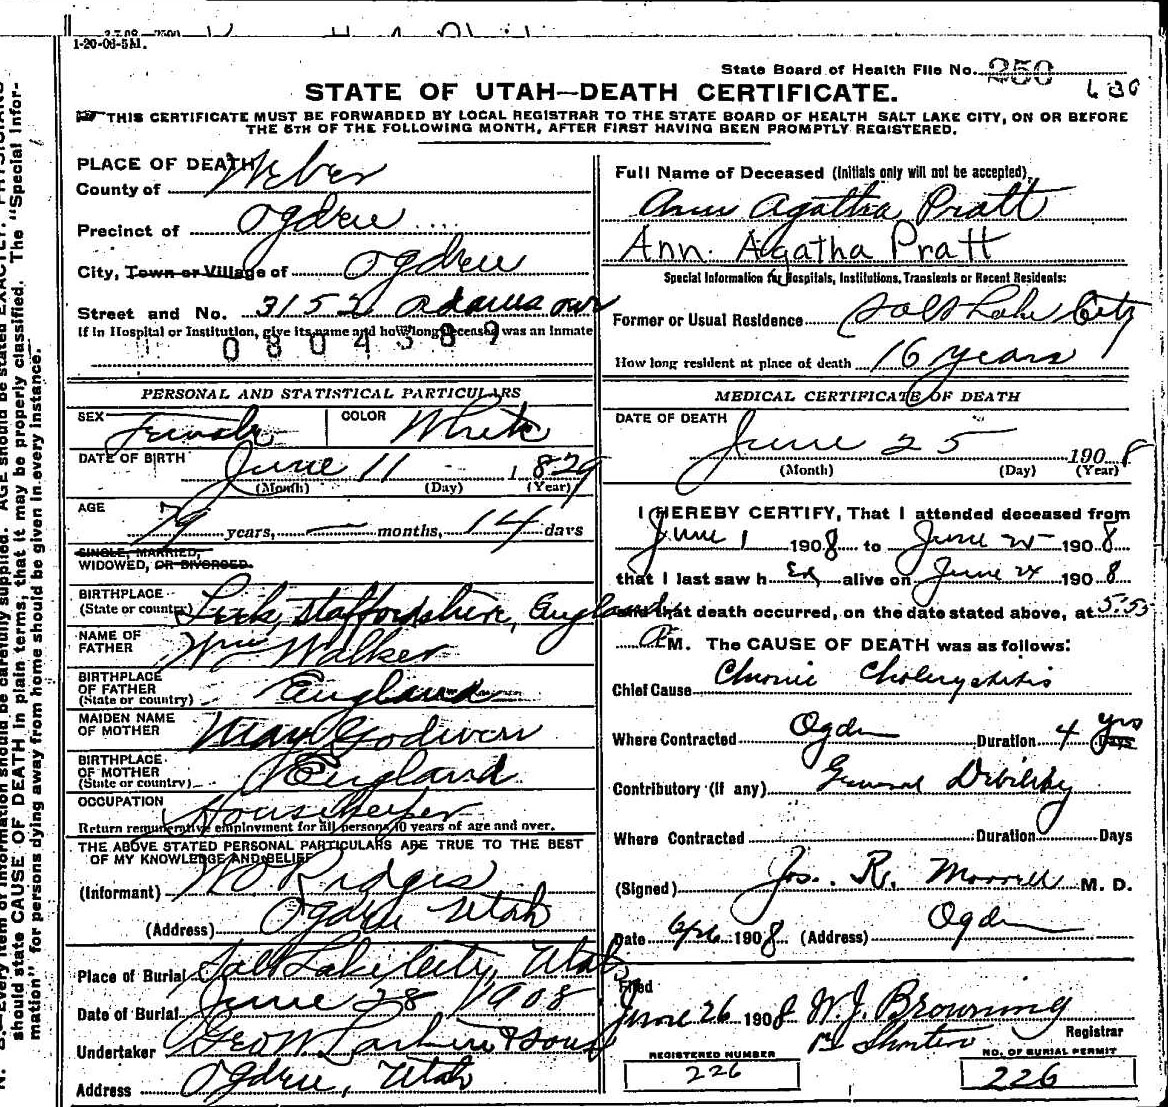 1-20-08-5M.
State Board of Health File No. 250
630
STATE OF UTAH—DEATH CERTIFICATE.
THIS CERTIFICATE MUST BE FORWARDED BY LOCAL REGISTRAR TO THE STATE BOARD OF HEALTH SALT LAKE CITY, ON OR BEFORE
THE 5TH OF THE FOLLOWING MONTH, AFTER FIRST HAVING BEEN PROMPTLY REGISTERED.
PLACE OF DEATH
County of Weber
Precinct of Ogden
City, Town or Village of Ogden
Street and No. 3152 Adams ave
If in Hospital or Institution, give its name and how long deceased was an inmate
0804389
PERSONAL AND STATISTICAL PARTICULARS
SEX Female COLOR White
DATE OF BIRTH June 11 1829
(Month) (Day) (Year)
AGE 79 years, — months, 14 days
SINGLE, MARRIED,
WIDOWED, OR DIVORCED.
BIRTHPLACE
(State or country) Leek, Staffordshire, England
NAME OF
FATHER Wm Walker
BIRTHPLACE
OF FATHER
(State or country) England
MAIDEN NAME
OF MOTHER Mary Godwin
BIRTHPLACE
OF MOTHER
(State or country) England
OCCUPATION Housekeeper
Return remunerative employment for all persons 10 years of age and over.
THE ABOVE STATED PERSONAL PARTICULARS ARE TRUE TO THE BEST
OF MY KNOWLEDGE AND BELIEF
(Informant) W O Ridges
(Address) Ogden Utah
Place of Burial Salt Lake City, Utah
Date of Burial June 28 1908
Undertaker Geo W. Larkin & Sons
Address Ogden, Utah
Full Name of Deceased (Initials only will not be accepted)
Ann Agatha Pratt
Ann Agatha Pratt
Special Information for Hospitals, Institutions, Transients or Recent Residents:
Former or Usual Residence Salt Lake City
How long resident at place of death 16 years
MEDICAL CERTIFICATE OF DEATH
DATE OF DEATH
June 25 1908
(Month) (Day) (Year)
I HEREBY CERTIFY, That I attended deceased from
June 1 1908 to June 25 1908
that I last saw h er alive on June 24 1908
and that death occurred, on the date stated above, at 5:55
M. The CAUSE OF DEATH was as follows:
Chief Cause Chronic Cholecystitis
Where Contracted Ogden Duration 4 yrs Days
Contributory (If any) General Debility
Where Contracted Duration Days
(Signed) Jos. R. Morrell M. D.
Date 6/26 1908 (Address) Ogden
Filed
June 26 1908 W. J. Browning
Registrar
REGISTERED NUMBER
226
NO. OF BURIAL PERMIT
226
should state CAUSE OF DEATH in plain terms, that it may be properly classified. The "Special Infor-
mation" for persons dying away from home should be given in every instance.